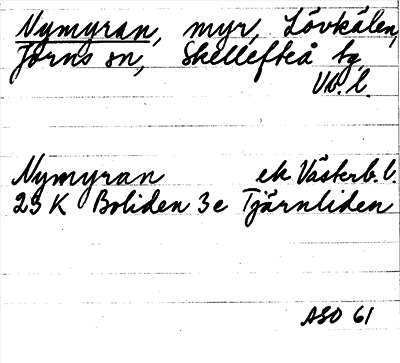 Nymyran, myr, Lövkålen,
Jörns sn, Skellefteå tg
Vb. l.
Nymyran ek Västerb. l.
23 K Boliden 3e Tjärnliden
ASO 61